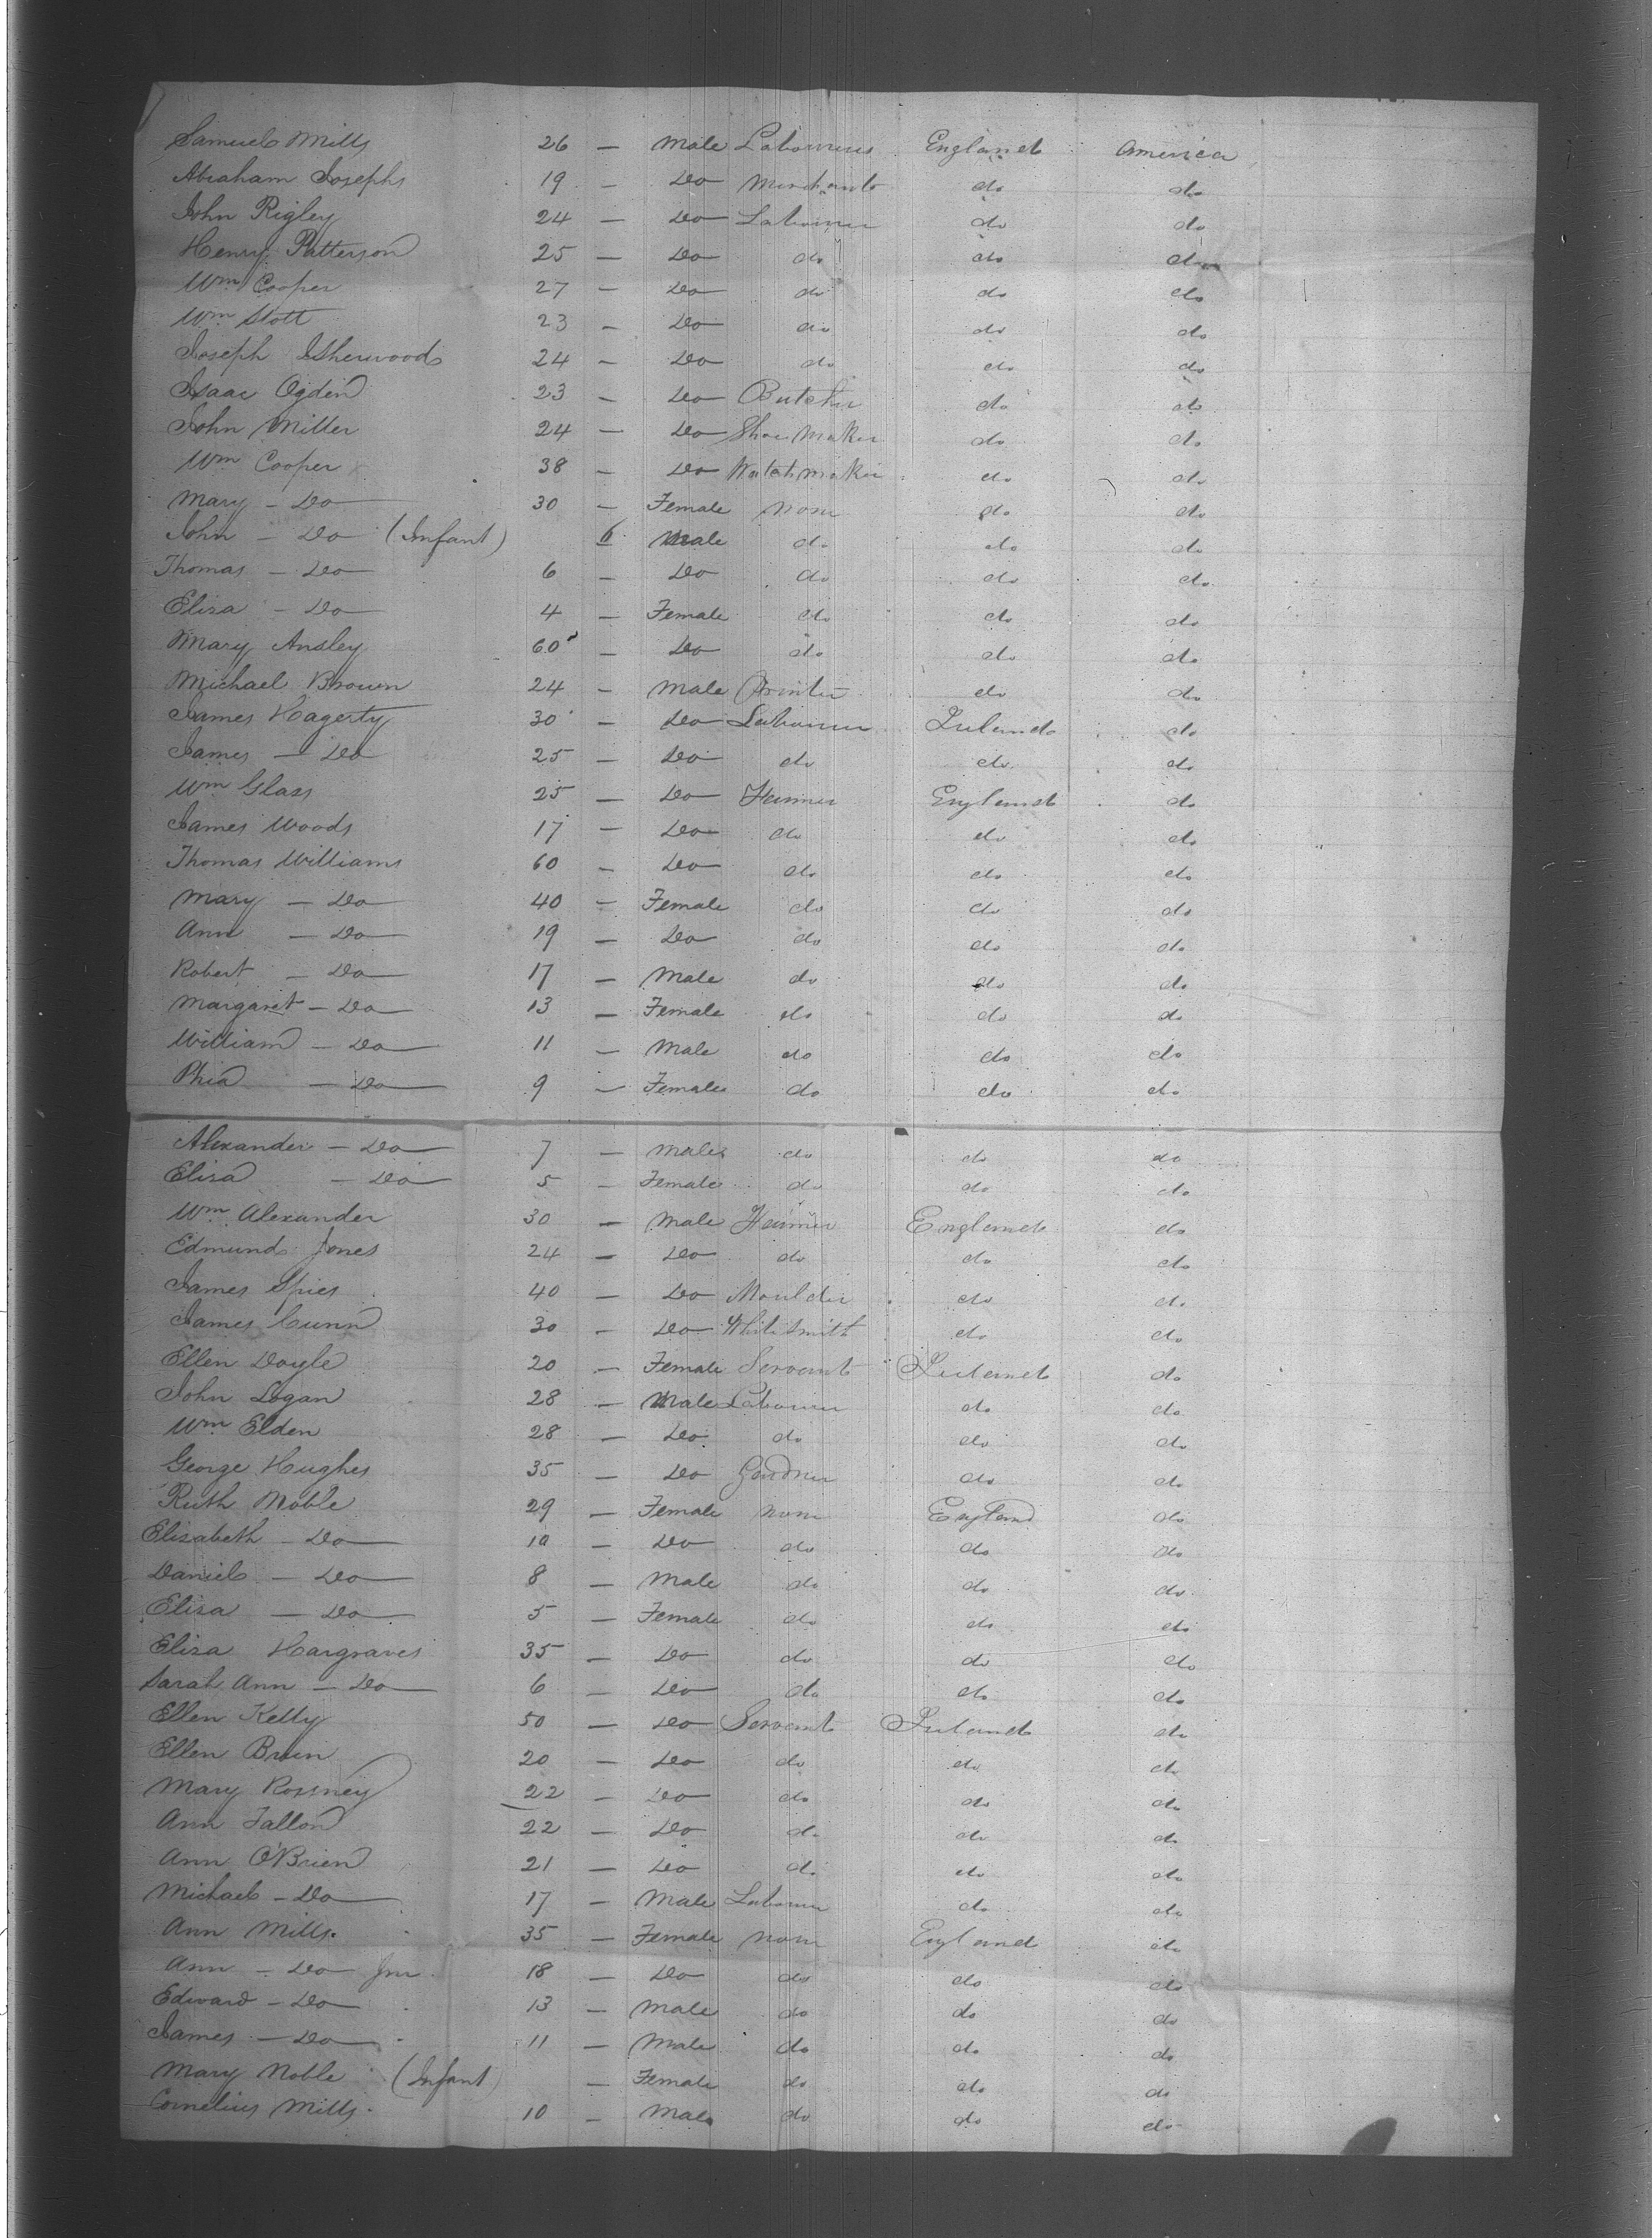 Samuel Mills 26 — Male Labourer England America
Abraham Josephs 19 — Do Merchant do do
John Rigley 24 — Do Labourer do do
Henry Patterson 25 — Do do do do
Wm Cooper 27 — Do do do do
Wm Stott 23 — Do do do do
Joseph Isherwood 24 — Do do do do
Isaac Ogden 23 — Do Butcher do do
John Miller 24 — Do Shoe Maker do do
Wm Cooper 38 — Do Watch maker do do
Mary — Do 30 — Female None do do
John — Do (Infant) 6 Male do do do
Thomas — Do 6 — Do do do do
Eliza — Do 4 — Female do do do
Mary Ansley 60 — Do do do do
Michael Brown 24 — Male Printer do do
James Hagerty 30 — Do Labourer Ireland do
James — Do 25 — Do do do do
Wm Glass 25 — Do Farmer England do
James Woods 17 — Do do do do
Thomas Williams 60 — Do do do do
Mary — Do 40 — Female do do do
Ann — Do 19 — Do do do do
Robert — Do 17 — Male do do do
Margaret — Do 13 — Female do do do
William — Do 11 — Male do do do
Phia — Do 9 — Female do do do
Alexander — Do 7 — Male do do do
Eliza — Do 5 — Female do do do
Wm Alexander 30 — Male Farmer England do
Edmund Jones 24 — Do do do do
James Spies 40 — Do Moulder do do
James Cunn 30 — Do White Smith do do
Ellen Doyle 20 — Female Servant Ireland do
John Logan 28 — Male Labourer do do
Wm Elden 28 — Do do do do
George Hughes 35 — Do Gardner do do
Ruth Noble 29 — Female None England do
Elizabeth — Do 10 — Do do do do
Daniel — Do 8 — Male do do do
Eliza — Do 5 — Female do do do
Eliza Hargraves 35 — Do do do do
Sarah Ann — Do 6 — Do do do do
Ellen Kelly 50 — Do Servant Ireland do
Ellen 20 — Do do do do
Mary 22 — Do do do do
Ann Fallon 22 — Do do do do
Ann O'Brien 21 — Do do do do
Michael — Do 17 — Male Labourer do do
Ann Mills. 35 — Female None England do
Ann — Do Jnr 18 — Do do do do
Edward — Do 13 — Male do do do
James — Do 11 — Male do do do
Mary Noble (Infant) — Female do do do
Cornelius Mills. 10 — Male do do do